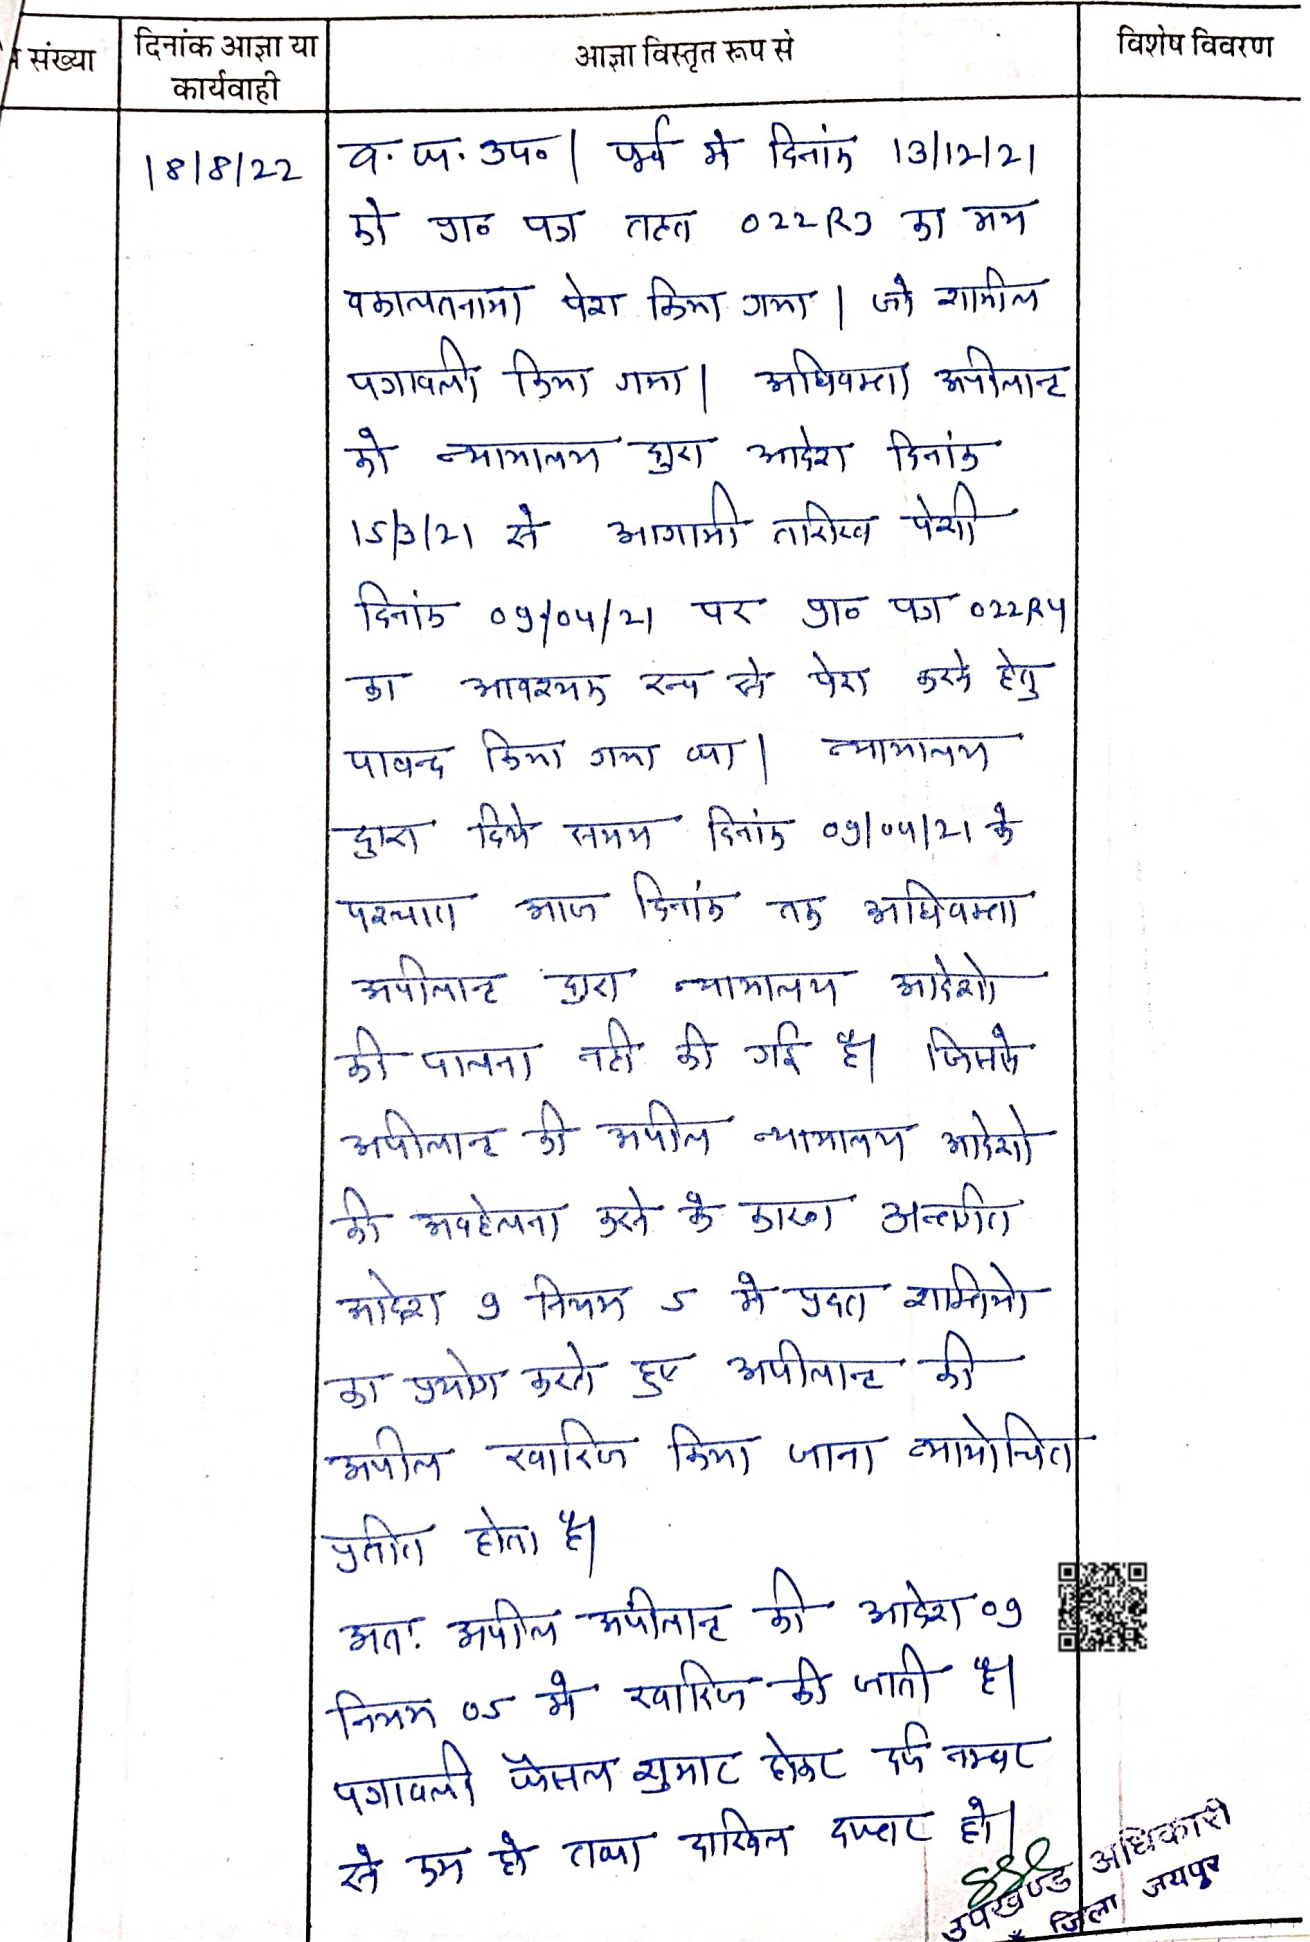 संख्या
दिनांक आज्ञा या
कार्यवाही
आज्ञा विस्तृत रूप से
विशेष विवरण
18/8/22
व. प. उप० | पूर्व मे दिनांक 13/12/21
को प्रा० पत्र तहत 022R3 का मय
वकालतनामा पेश किया गया | जो शामील
पत्रावली किया गया | अधिवक्ता अपीलान्ट
को न्यायालय द्वारा आदेश दिनांक
15/3/21 से आगामी तारीख पेशी
दिनांक 09/04/21 पर प्रा० पत्र 022R4
का आवश्यक रूप से पेश करने हेतु
पाबन्द किया गया था | न्यायालय
द्वारा दिये समय दिनांक 09/04/21 के
पश्चात आज दिनांक तक अधिवक्ता
अपीलान्ट द्वारा न्यायालय आदेशो
की पालना नही की गई है| जिससे
अपीलान्ट की अपील न्यायालय आदेशो
की अवहेलना करने के कारण अन्तर्गत
आदेश 9 नियम 5 मे प्रदत शक्तियो
का प्रयोग करते हुए अपीलान्ट की
अपील खारिज किया जाना न्यायोचित
प्रतीत होता है|
अतः अपील अपीलान्ट की आदेश 09
नियम 05 मे खारिज की जाती है|
पत्रावली फैसल शुमार होकर दर्ज नम्बर
से कम हो तथा दाखिल दफ्तर हो|
उपखण्ड अधिकारी
जिला जयपुर